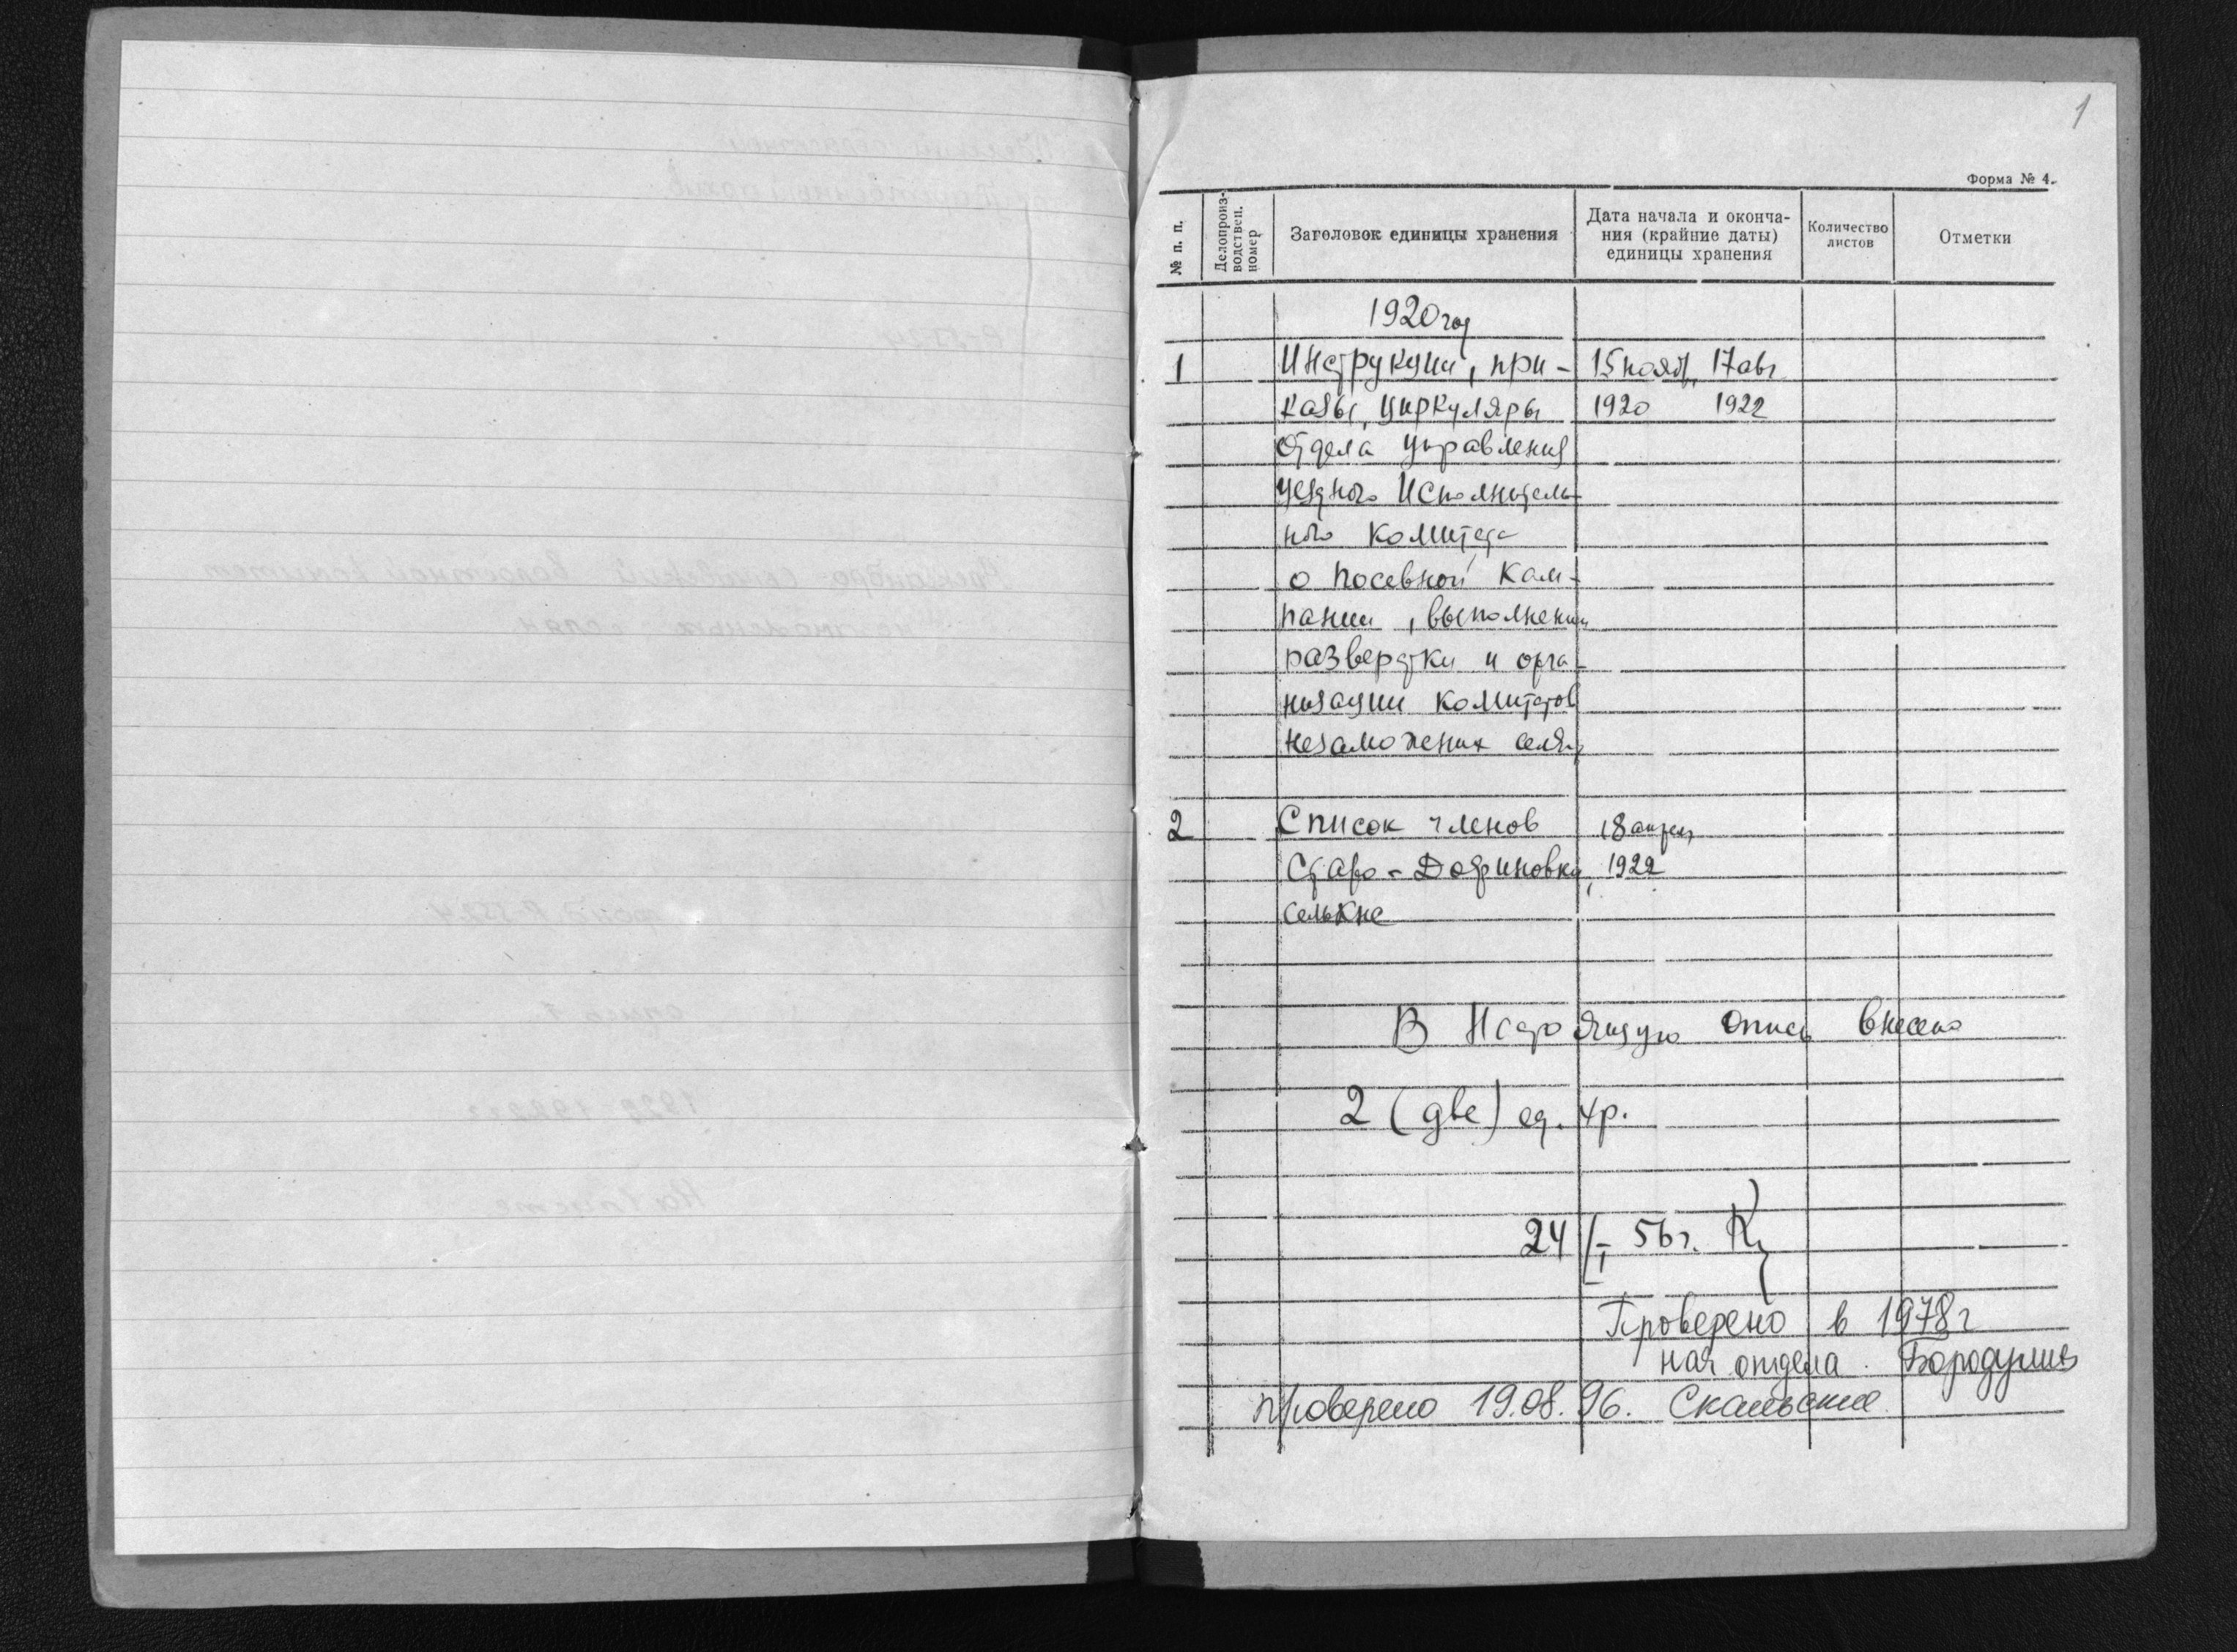 1
Форма № 4.
№ п. п.
Делопроиз-
водствен.
номер
Заголовок единицы хранения
Дата начала и оконча-
ния (крайние даты)
единицы хранения
Количество
листов
Отметки
1920 год
1 Инструкции, при- 15 нояб, 17 авг
казы, циркуляры 1920 1922
отдела управления
уездного Исполнитель-
ного комитета
о посевной кам-
пании, выполнении
разверстки и орга-
низации комитетов
незаможених селян
2 Список членов 18 апрель
Старо- 1922
сельКНС
В Настоящую опись внесено
2 (две) ед. хр.
24 56 г.
Проверено в 1978 г
нач отдела. Бородулина
проверено 19.08.96.